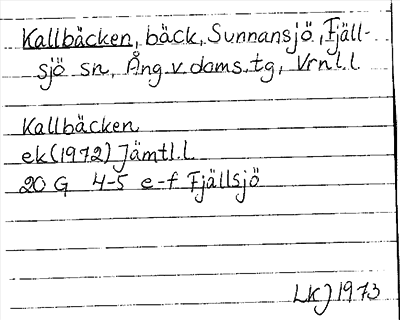 Kallbäcken, bäck, Sunnansjö, Fjäll-
sjö sn, Ång.v.doms.tg, Vrnl.l.
Kallbäcken
ek(1972) Jämtl.l
20 G 4-5 e-f Fjällsjö
LKJ 1973